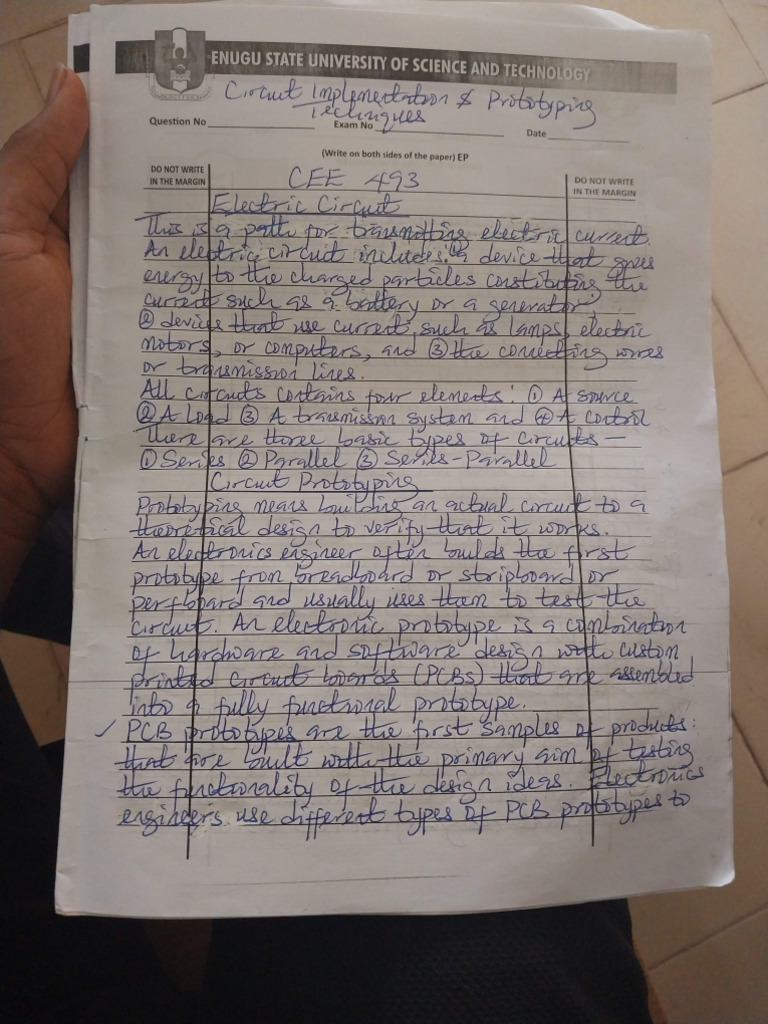 ENUGU STATE UNIVERSITY OF SCIENCE AND TECHNOLOGY
Circuit Implementation & Prototyping
Techniques
Question No Exam No Date
(Write on both sides of the paper) EP
DO NOT WRITE IN THE MARGIN
DO NOT WRITE IN THE MARGIN
CEE 493
Electric Circuit
This is a path for transmitting electric current.
An electric circuit includes: ① a device that gives
energy to the charged particles constituting the
current such as a battery or a generator;
② devices that use current, such as lamps, electric
motors, or computers, and ③ the connecting wires
or transmission lines.
All circuits contains four elements: ① A source
② A Load ③ A transmission system and ④ A control
There are three basic types of circuits –
① Series ② Parallel ③ Series-Parallel
Circuit Prototyping
Prototyping means building an actual circuit to a
theoretical design to verify that it works.
An electronics engineer often builds the first
prototype from breadboard or stripboard or
perfboard and usually uses them to test the
circuit. An electronic prototype is a combination
of hardware and software design with custom
printed circuit boards (PCBs) that are assembled
into a fully functional prototype.
✓ PCB prototypes are the first samples of products:
that are built with the primary aim of testing
the functionality of the design ideas. Electronics
engineers use different types of PCB prototypes to